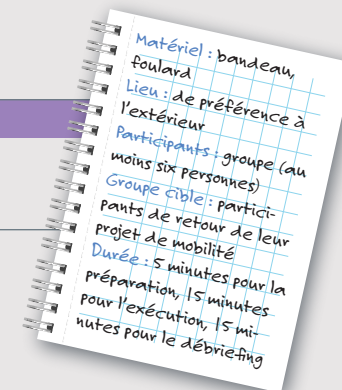 Matériel : bandeau,
foulard
Lieu : de préférence à
l'extérieur
Participants : groupe (au
moins six personnes)
Groupe cible : partici-
pants de retour de leur
projet de mobilité
Durée : 5 minutes pour la
préparation, 15 minutes
pour l'exécution, 15 mi-
nutes pour le débriefing